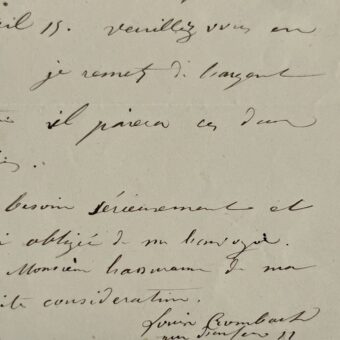 il 15. veuillez vous en
je remets de l'argent
il paiera ces deux
besoin sérieusement et
obligée de
Monsieur l'assurance de ma
consideration.
Louise Crombach
rue 11